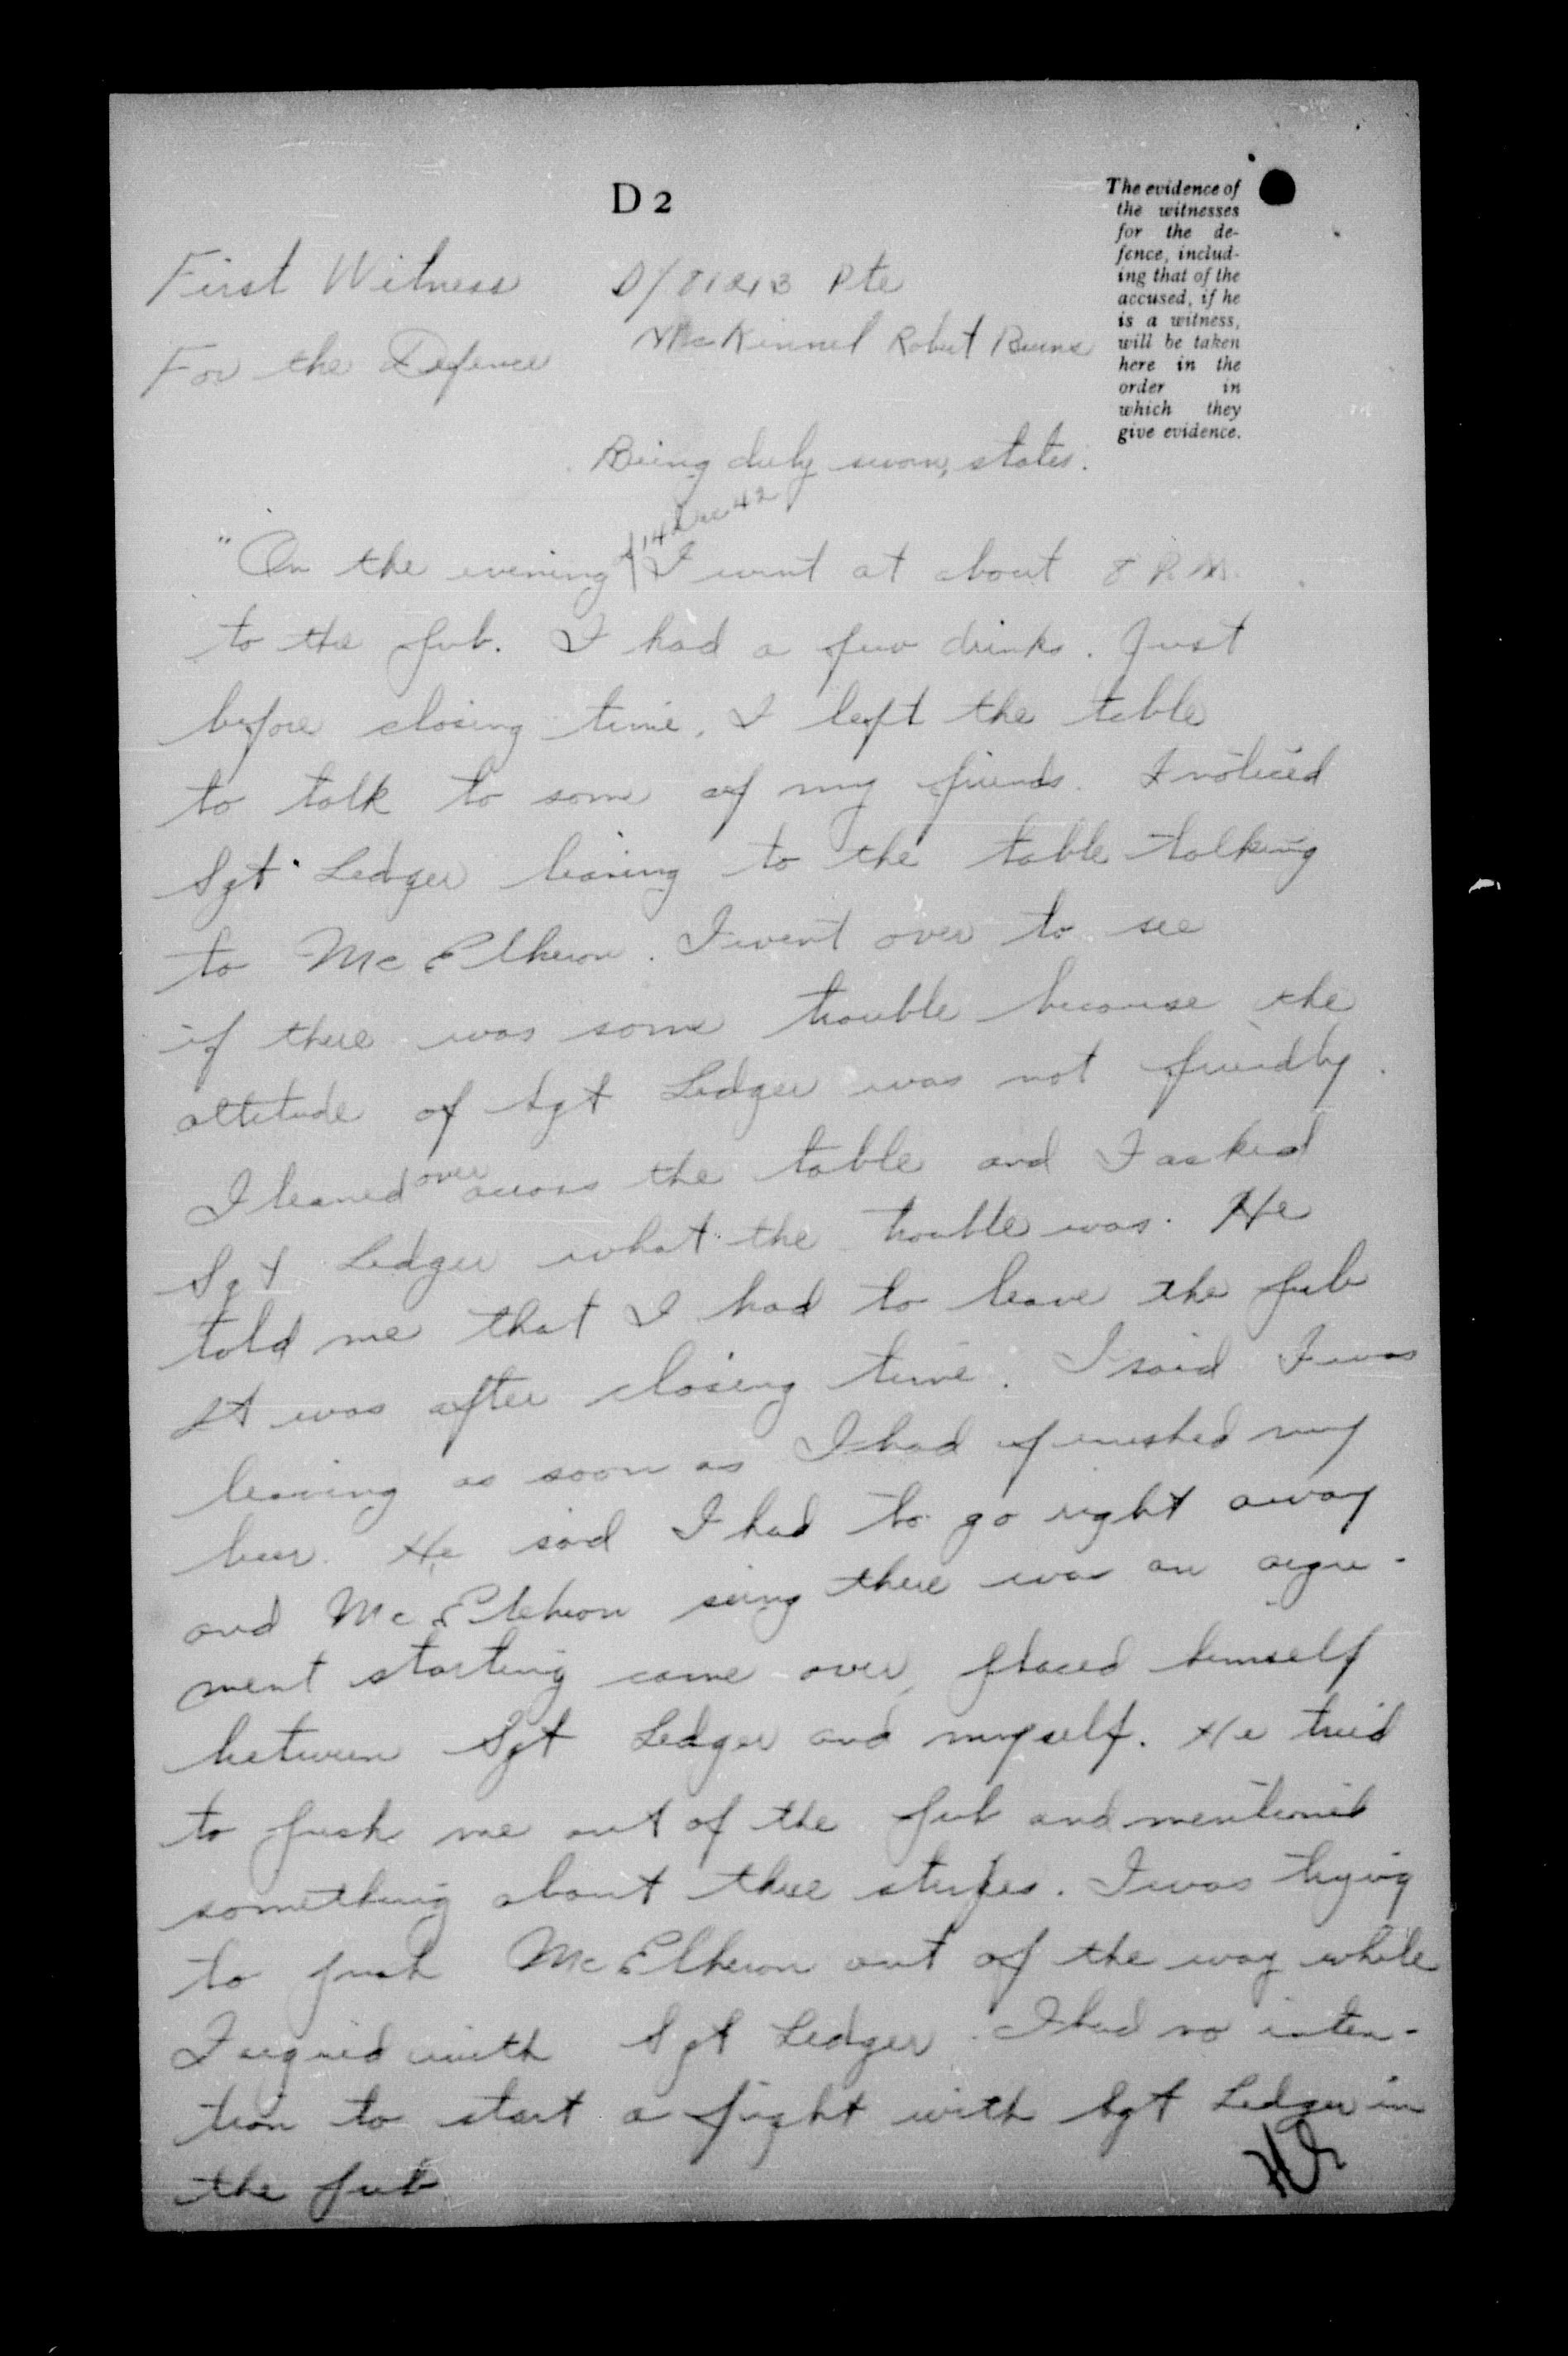 D 2
The evidence of
the witnesses
for the de-
fence, includ-
ing that of the
accused, if he
is a witness,
will be taken
here in the
order in
which they
give evidence.
First Witness D/81213 Pte
For the Defence McKinnel Robert Burns
Being duly sworn, states.
of 14 Dec 42
"On the evening I went at about 8 P.M.
to the pub. I had a few drinks. Just
before closing time, I left the table
to talk to some of my friends. I noticed
Sgt Ledger leaning to the table talking
to McElheron. I went over to see
if there was some trouble because the
attitude of Sgt Ledger was not friendly.
I leaned over across the table and I asked
Sgt Ledger what the trouble was. He
told me that I had to leave the pub
It was after closing time. I said I was
leaving as soon as I had finished my
beer. He said I had to go right away
and McElheron seing there was an argu-
ment starting came over, placed himself
between Sgt Ledger and myself. He tried
to push me out of the pub and mentioned
something about three stripes. I was trying
to push McElheron out of the way while
I argued with Sgt Ledger. I had no inten-
tion to start a fight with Sgt Ledger in
the pub.